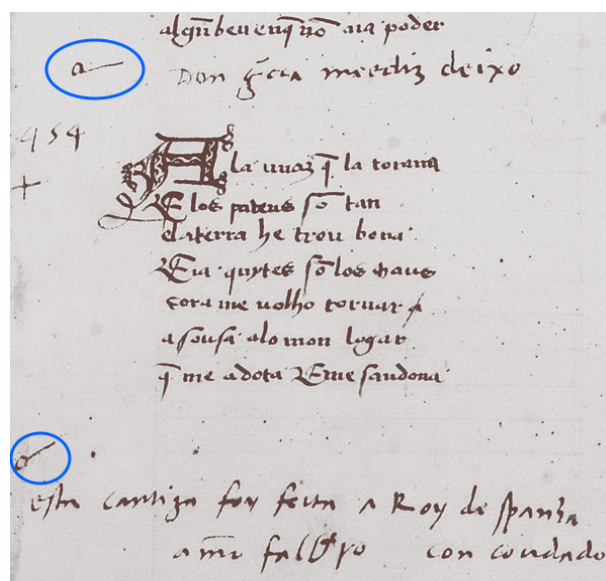 algũ ben en q̃ nõ aia poder
a
Don g̃cia meẽdiz deixo
454
Ala q̃ la torana
E los so tan
Eaterra he trou bona
E ia quytes sõ los maus
E ora me volho tornar
a sousa alo mon logar
q̃ me adota E me sandona
a
esta cantiga foy feita a Roy de spanha
con condado